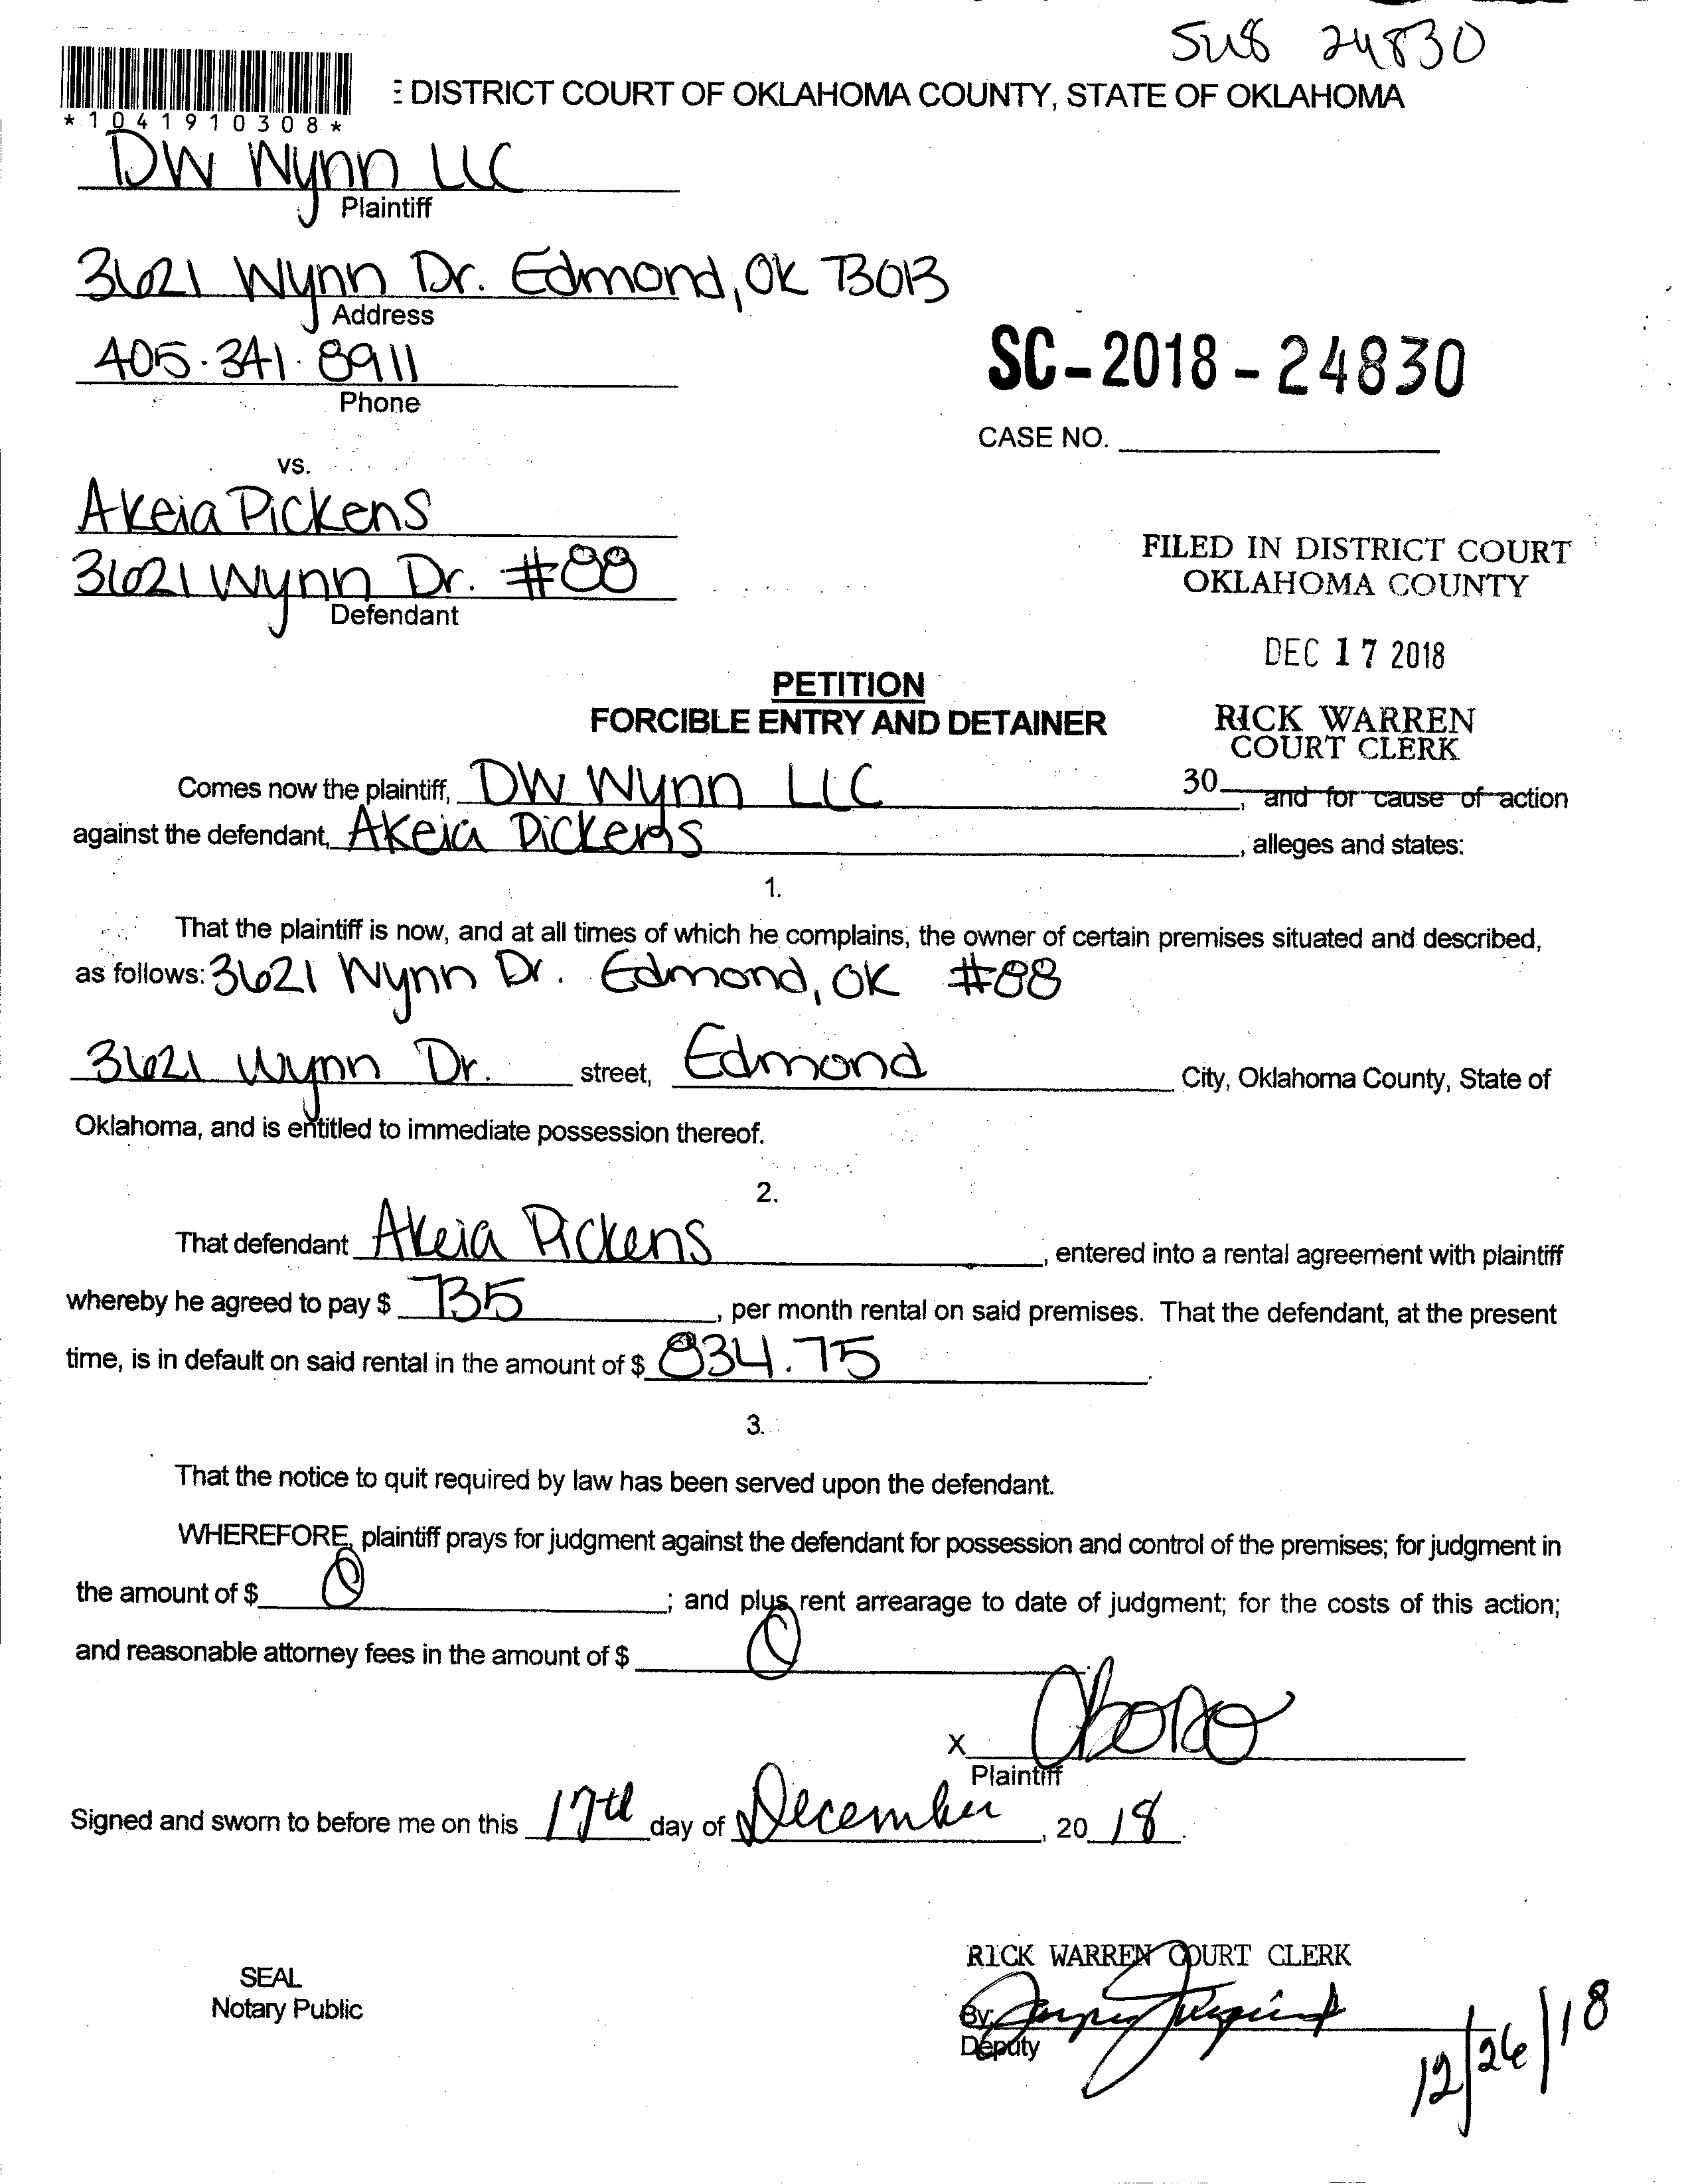 SUB 24830
DISTRICT COURT OF OKLAHOMA COUNTY, STATE OF OKLAHOMA
*1041910308*
DW Wynn LLC
Plaintiff
3621 Wynn Dr. Edmond, OK 73013
Address
405.341.8911
Phone
SC-2018-24830
CASE NO.
vs.
Akeia Pickens
3621 Wynn Dr. #88
Defendant
FILED IN DISTRICT COURT
OKLAHOMA COUNTY
DEC 17 2018
RICK WARREN
COURT CLERK
30
PETITION
FORCIBLE ENTRY AND DETAINER
Comes now the plaintiff, DW Wynn LLC, and for cause of action
against the defendant, Akeia Pickens, alleges and states:
1.
That the plaintiff is now, and at all times of which he complains, the owner of certain premises situated and described,
as follows: 3621 Wynn Dr. Edmond, OK #88
3621 Wynn Dr. street, Edmond City, Oklahoma County, State of
Oklahoma, and is entitled to immediate possession thereof.
2.
That defendant Akeia Pickens, entered into a rental agreement with plaintiff
whereby he agreed to pay $ 735, per month rental on said premises. That the defendant, at the present
time, is in default on said rental in the amount of $ 834.75.
3.
That the notice to quit required by law has been served upon the defendant.
WHEREFORE, plaintiff prays for judgment against the defendant for possession and control of the premises; for judgment in
the amount of $ 0; and plus rent arrearage to date of judgment; for the costs of this action;
and reasonable attorney fees in the amount of $ 0
X
Plaintiff
Signed and sworn to before me on this 17th day of December, 20 18.
SEAL
Notary Public
RICK WARREN COURT CLERK
By:
Deputy
12/26/18